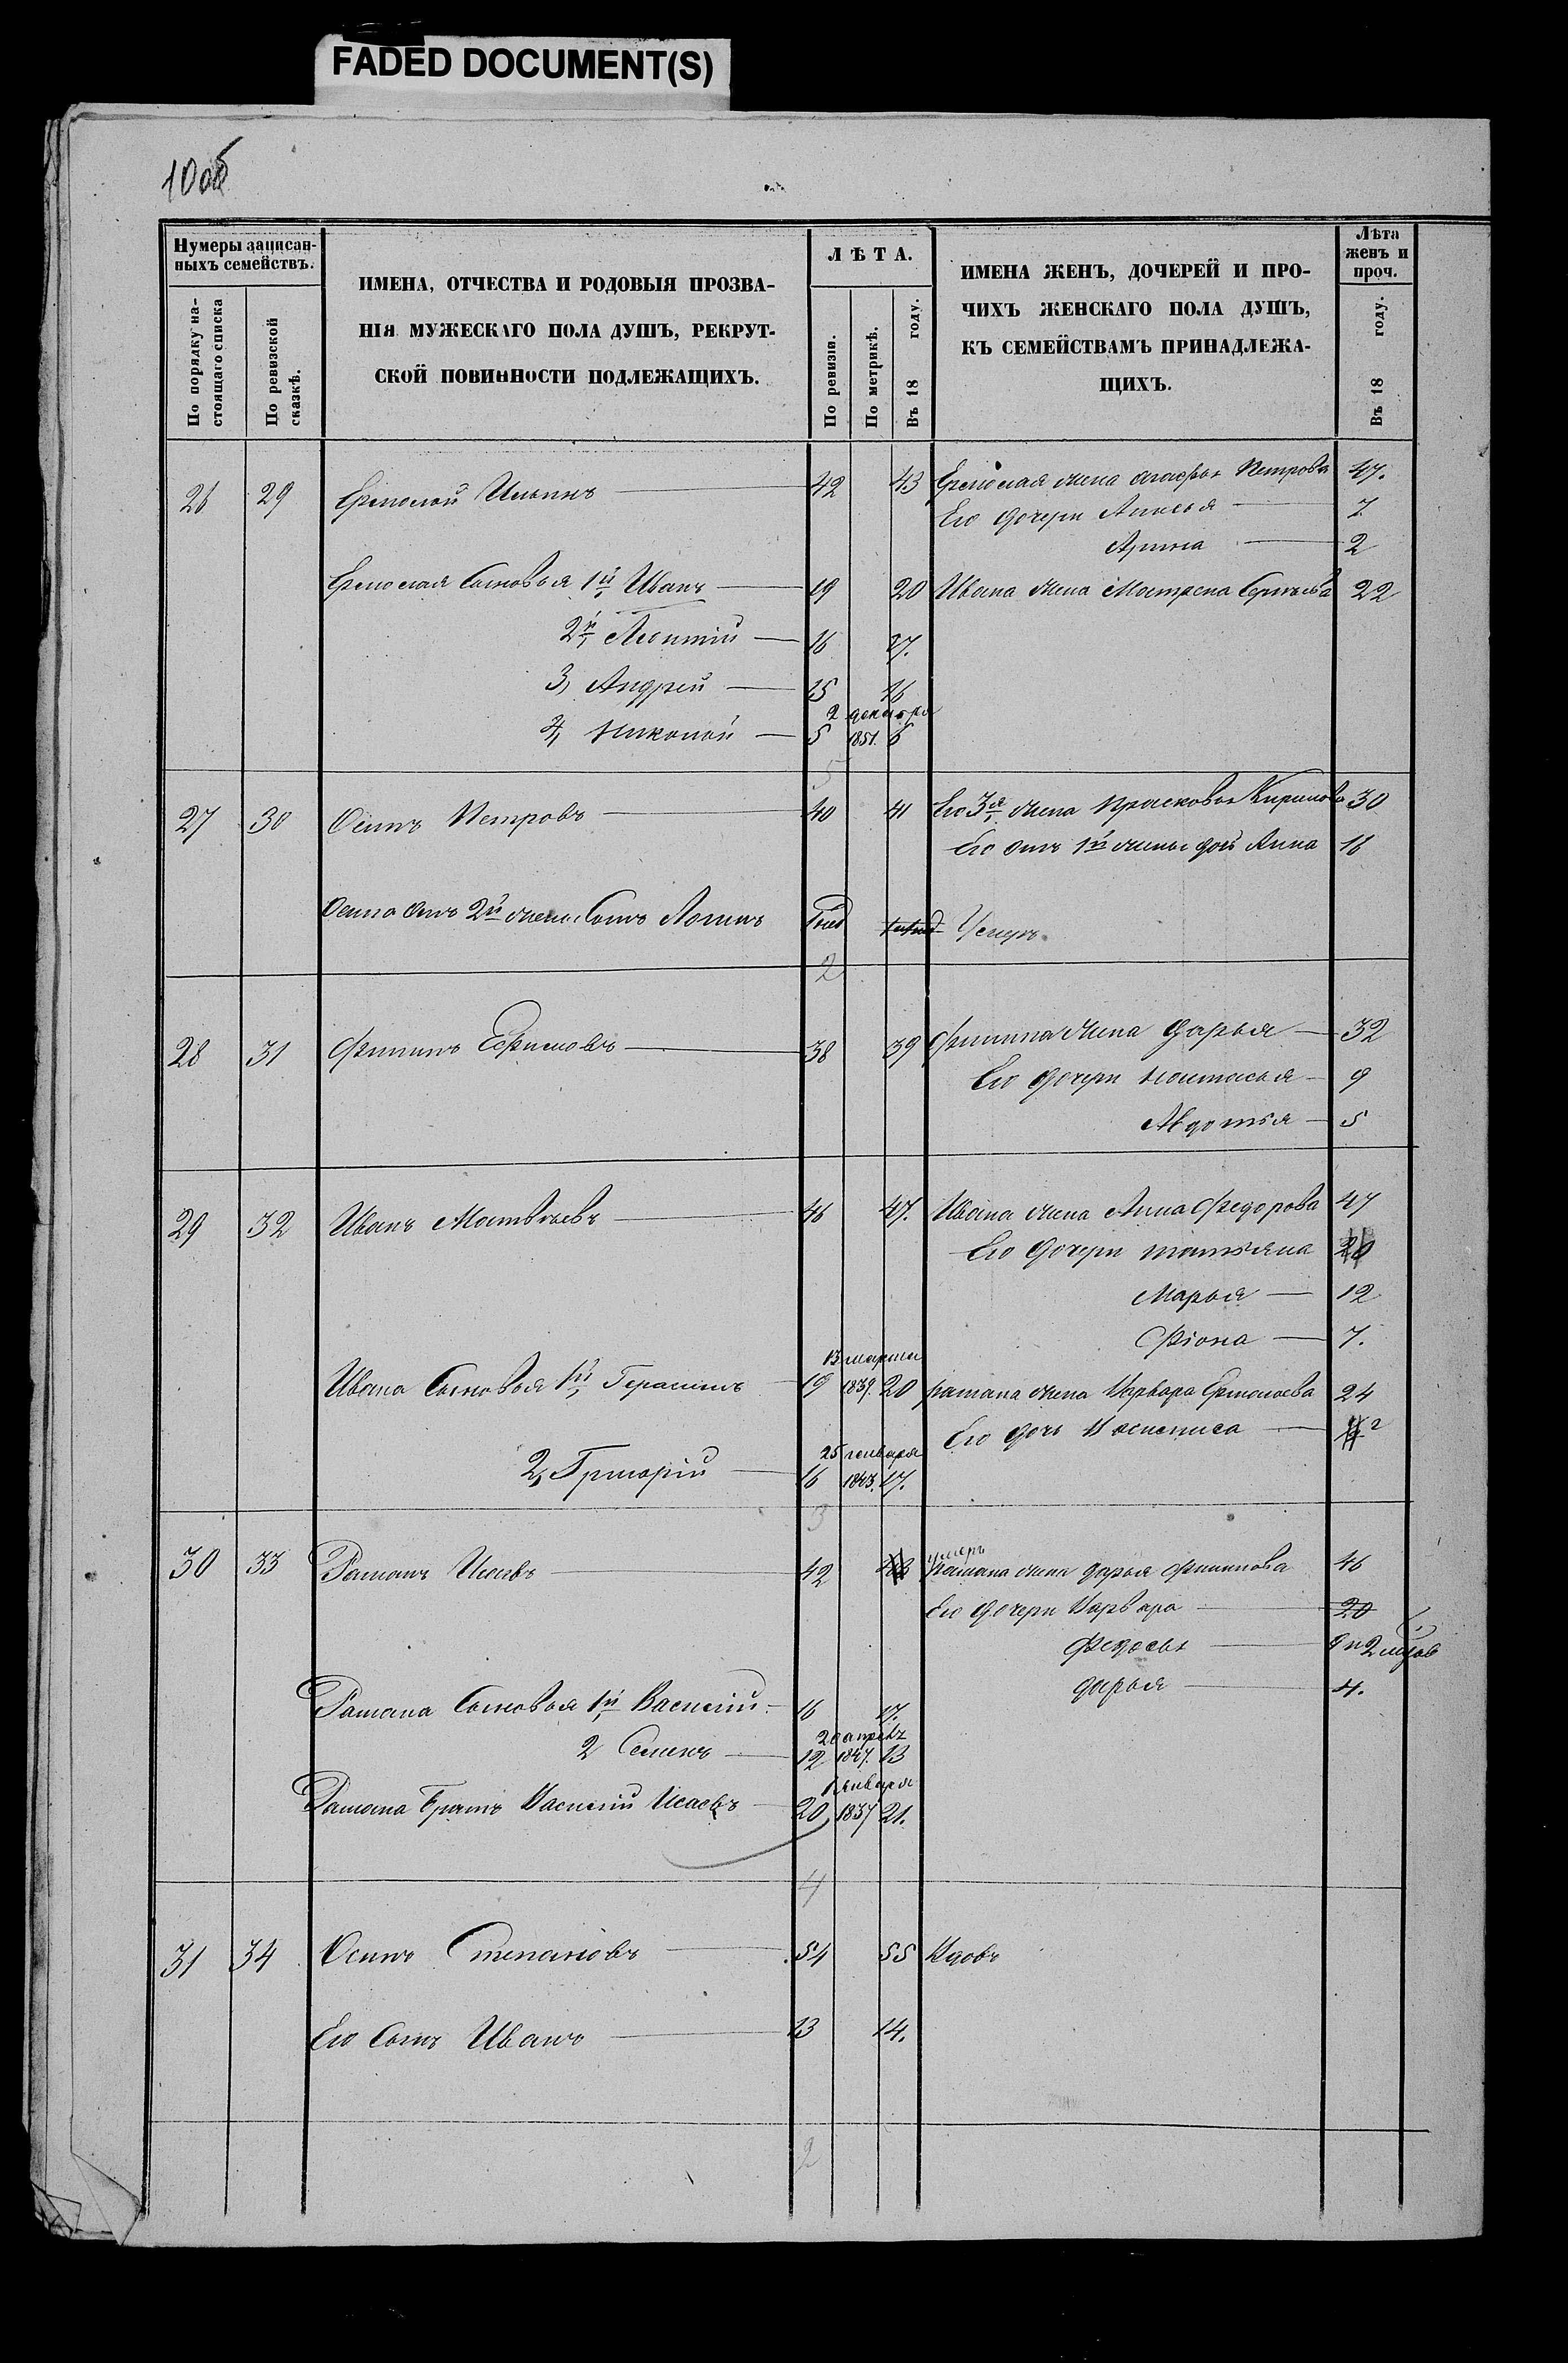 FADED DOCUMENT(S)
10об
Нумеры записан-
ныхъ семействъ.
По порядку на-
стоящаго списка
По ревизской
сказкѣ.
ИМЕНА, ОТЧЕСТВА И РОДОВЫЯ ПРОЗВА-
НІЯ МУЖЕСКАГО ПОЛА ДУШЪ, РЕКРУТ-
СКОЙ ПОВИННОСТИ ПОДЛЕЖАЩИХЪ.
ЛѢТА.
По ревизіи.
По метрикѣ.
Въ 18 году.
ИМЕНА ЖЕНЪ, ДОЧЕРЕЙ И ПРО-
ЧИХЪ ЖЕНСКАГО ПОЛА ДУШЪ,
КЪ СЕМЕЙСТВАМЪ ПРИНАДЛЕЖА-
ЩИХЪ.
Лѣта
женъ и
проч.
Въ 18 году.
26 29 Ермолай Ильинъ 42 43 Ермолая жена Агафья Петрова 47.
Его дочери Анисья 7
Арина 2
Ермолая Сыновья 1й Иванъ 19 20 Ивана жена Матрена Сергѣева 22
2й Леонтій 16 17.
3, Андрей 15 16
2 декабря
4, Николай 5 1851. 6
5
27 30 Осипъ Петровъ 40 41 Его 3я жена Прасковья Кирилова 30
Его отъ 1й жены дочь Анна 16
Осипа отъ 2й жены Сынъ Логинъ Умеръ
2
28 31 Филипъ Ефимовъ 38 39 Филипа жена Дарья 32
Его дочери Настасья 9
Авдотья 5
29 32 Иванъ Матвѣевъ 46 47. Ивана жена Анна Федорова 47
Его дочери Татьяна 20
Марья 12
Фіона 7.
13 марта
Ивана Сыновья 1й Герасимъ 19 1839. 20 жена Варвара Ермолаева 24
Его дочь Василиса 2
25 генваря
2, Григорій 16 1843. 17.
3
30 33 Раманъ Исаевъ 42 умеръ
Рамана жена Дарья Филипова 46
Его дочери Варвара 20
Федосья
Дарья 4.
Рамана Сыновья 1й Василій 16 17.
20 апрѣля
2 Семенъ 12 1847. 13
1 генваря
Рамана братъ Василій Исаевъ 20 1837 21.
4
31 34 Осипъ Степановъ 54 55 Вдовъ
Его Сынъ Иванъ 13 14.
2